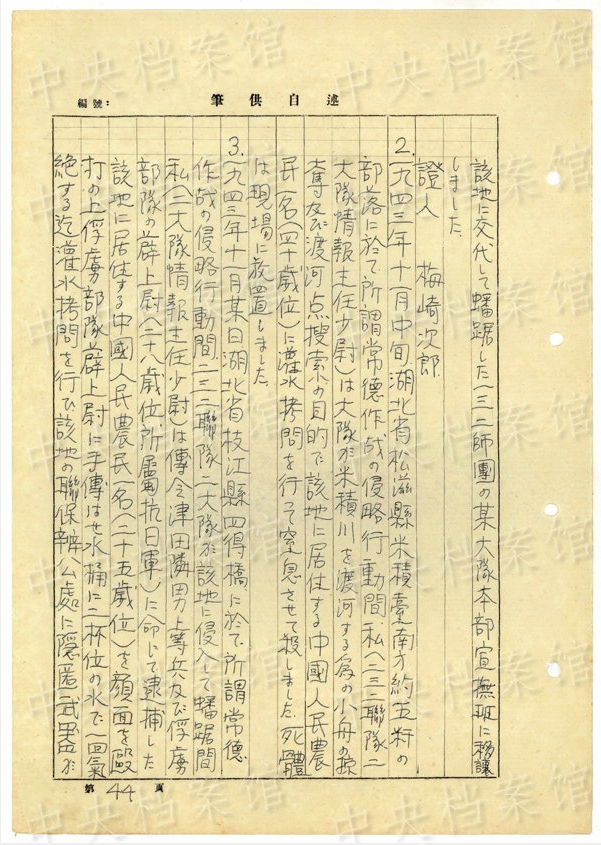 編號：
筆供自述
該地に交代して蟠踞した一三二師團の某大隊本部宣撫班に移讓
しました。
證人 梅崎次郎
2. 一九四三年十一月中旬湖北省松滋縣米積臺南方約五粁の
部落に於て所謂常德作战の侵略行動間私(二三二聯隊二
大隊情報主任少尉)は大隊が米積川を渡河する爲の小舟の掠
奪及び渡河点搜索の目的で該地に居住する中國人民農
民一名(四十歲位)に灌水拷問を行って窒息させて殺しました。死體
は現場に放置しました。
3. 一九四三年十一月某日湖北省枝江縣四得橋に於て所謂常德
作战の侵略行動間二三二聯隊二大隊が該地に侵入して蟠踞間
私(二大隊情報主任少尉)は傳令津田隣男上等兵及び俘虜
部隊の薛上尉(二十八歲位、所屬抗日軍)に命じて逮捕した
該地に居住する中國人民農民一名(二十五歲位)を顏面を毆
打の上俘虜部隊薛上尉に手傳はせ水桶に二杯位の水で一回氣
絶する迄灌水拷問を行ひ該地の聯保辦公處に隱匿武器が
第 44 頁
中央档案馆